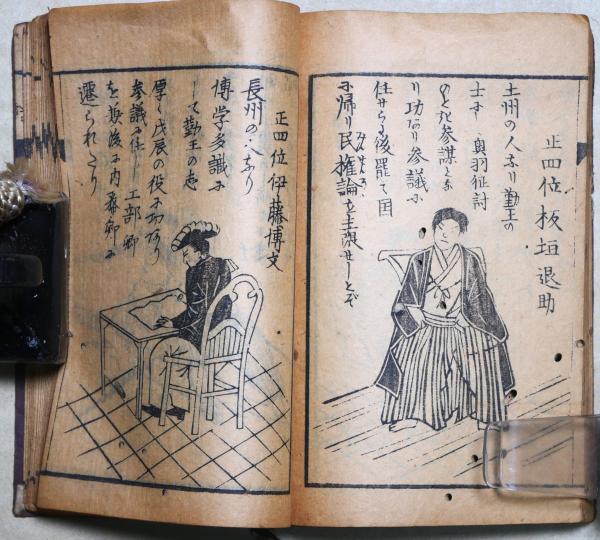 正四位板垣退助
土州の人なり勤王の
士にして奥羽征討
のとき参謀となり
功なり参議に
任せらる後罷て国
に帰り民権論を主張せしとぞ
みんけんろん
正四位伊藤博文
長州の人なり
博学多識に
して勤王の志
厚く戊辰の役に功なり
参議に任し工部卿
を兼後に内務卿に
遷られたり